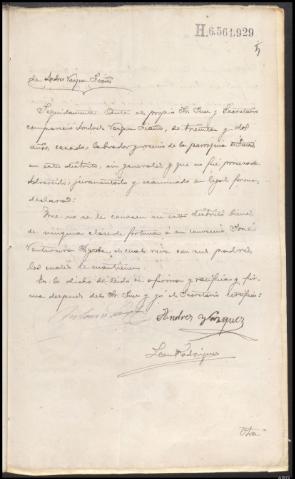 H.6.561.929
de Andres Vazquez
Seguidamente ante el propio Sr Juez y Secretario
compareció Andres Vazquez, de treinta y dos
años, casado, labrador, vecino de la parroquia
en este distrito, sin generales y que no fue procesado
advertido, juramentado y examinado en legal forma,
declaró:
Que no se le conocen en este distrito bienes
de ninguna clase de fortuna á su convecino José
el cual vive con sus padres,
los cuales le mantienen.
En lo dicho de leido se afirma y ratifica y fir-
ma despues del Sr. Juez y yo el Secretario certifico:
Andres Vazquez
Rodriguez
Otra